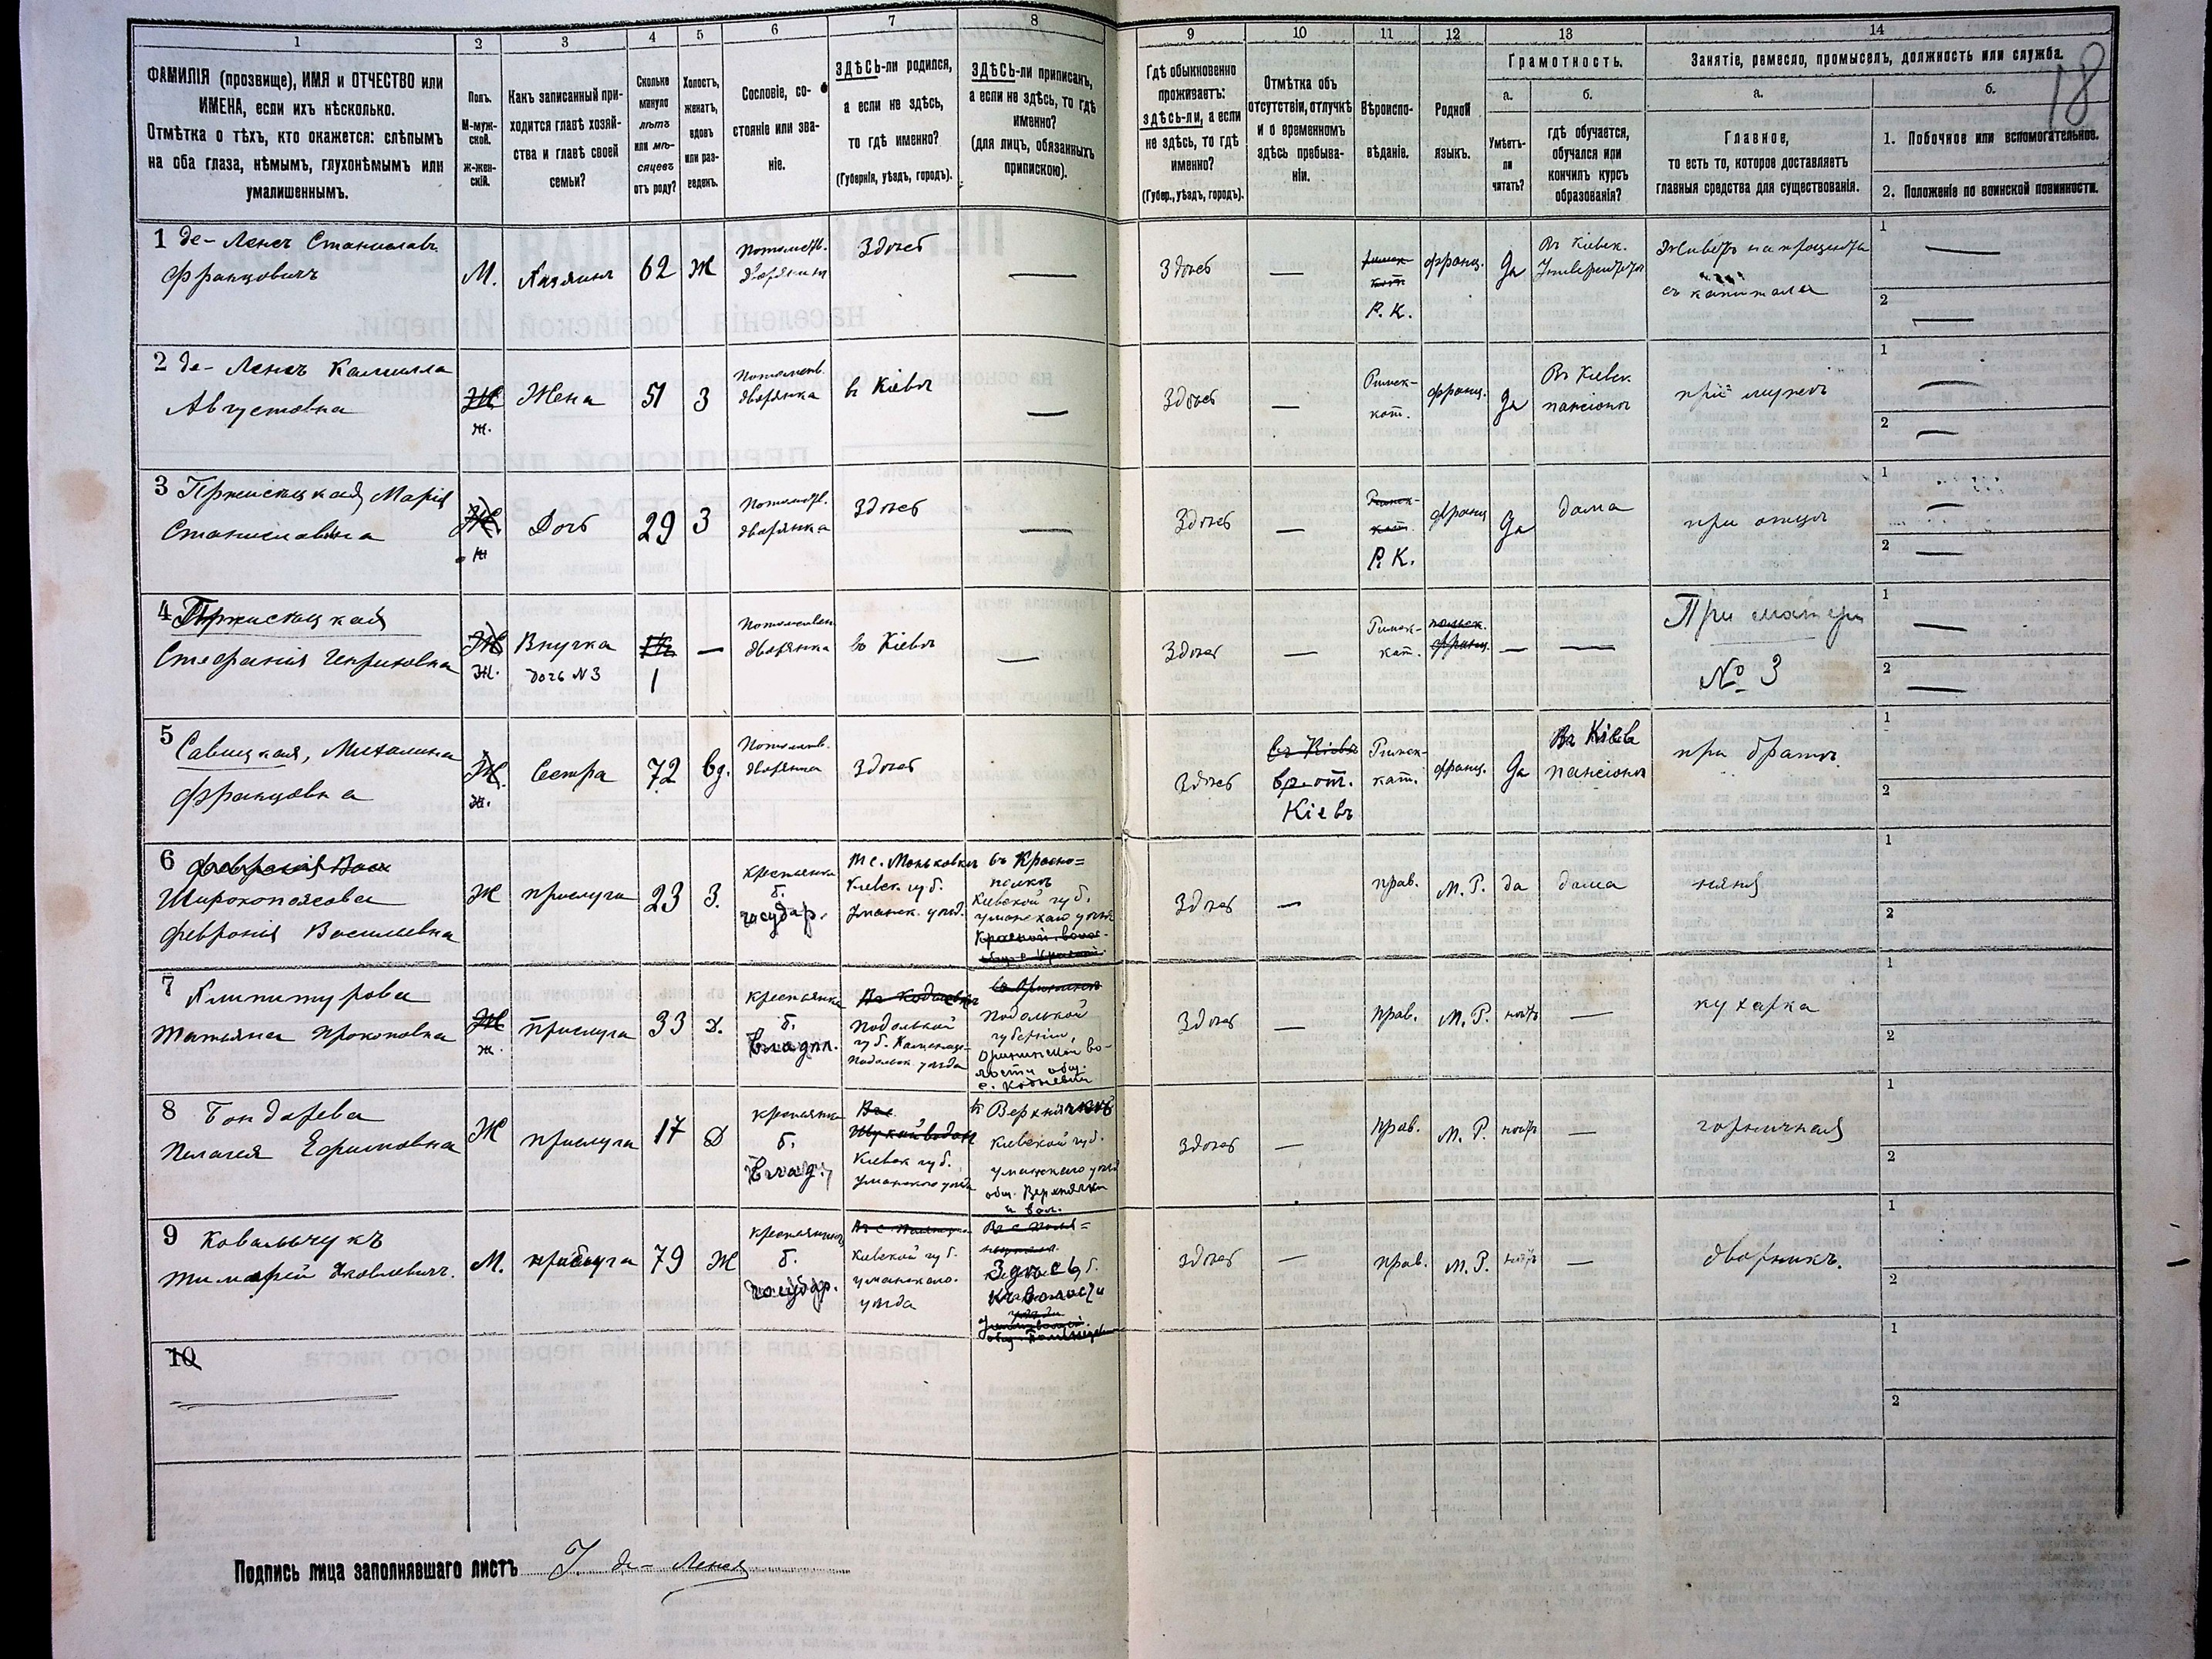 1 2 3 4 5 6 7 8 9 10 11 12 13 14
ФАМИЛІЯ (прозвище), ИМЯ и ОТЧЕСТВО или
ИМЕНА, если ихъ нѣсколько.
Отмѣтка о тѣхъ, кто окажется: слѣпымъ
на оба глаза, нѣмымъ, глухонѣмымъ или
умалишеннымъ.
Полъ.
М-муж-
ской.
ж-жен-
скій.
Какъ записанный при-
ходится главѣ хозяй-
ства и главѣ своей
семьи?
Сколько
минуло
лѣтъ
или мѣ-
сяцевъ
отъ роду?
Холостъ,
женатъ,
вдовъ
или раз-
веденъ.
Сословіе, со-
стояніе или зва-
ніе.
ЗДѢСЬ-ли родился,
а если не здѣсь,
то гдѣ именно?
(Губернія, уѣздъ, городъ).
ЗДѢСЬ-ли приписанъ,
а если не здѣсь, то гдѣ
именно?
(для лицъ, обязанныхъ
припискою).
Гдѣ обыкновенно
проживаетъ:
здѣсь-ли, а если
не здѣсь, то гдѣ
именно?
(Губер., уѣздъ, городъ).
Отмѣтка объ
отсутствіи, отлучкѣ
и о временномъ
здѣсь пребыва-
ніи.
Вѣроиспо-
вѣданіе.
Родной
языкъ.
Грамотность.
а.
Умѣетъ-
ли
читать?
б.
гдѣ обучается,
обучался или
кончилъ курсъ
образованія?
Занятіе, ремесло, промыселъ, должность или служба.
18
а.
Главное,
то есть то, которое доставляетъ
главныя средства для существованія.
б.
1. Побочное или вспомогательное.
2. Положеніе по воинской повинности.
1 де-Ленсъ Станиславъ
Францовичъ
М. Хазяинъ 62 Ж
Потомств.
дворянинъ
Здѣсь —
Здѣсь —
Римск-
кат.
Р. К.
франц. Да
Въ Кіевск.
Университетѣ
Живетъ на проценты
съ капитала
1 —
2 —
2 де-Ленсъ Камилла
Августовна
Ж
ж.
Жена 51 З
Потомств.
дворянка
в Кіевѣ —
Здѣсь —
Римск-
кат.
франц. Да
Въ Кіевск.
пансіонѣ
при мужѣ
1 —
2 —
3 Маріа
Станиславовна
Ж
ж
Дочь 29 З
Потомств.
дворянка
Здѣсь —
Здѣсь —
Римск-
кат.
Р. К.
франц Да дома
при отцѣ
1 —
2 —
4
Стефанія Генриховна
Ж
Ж.
Внучка
дочь № 3
1 —
Потомствен
дворянка
въ Кіевѣ —
Здѣсь —
Римск-
кат.
польск.
франц.
— —
При матери
№ 3
1 —
2 —
5
Савицкая, Михалина
Францовна
Ж.
ж.
Сестра 72 вд.
Потомств.
дворянка
Здѣсь
Здѣсь
въ Кіевѣ
вр. от.
Кіевъ
Римск-
кат.
франц. Да
Въ Кіевѣ
пансіонѣ
при братѣ
1
2
6 Февронія Вас
Широкопоясова
Февронія Василевна
Ж прислуга 23 З.
крестьянка
б.
государ.
въ с. Маньковкѣ
Кіевск. губ.
Уманск. уѣзд.
въ Красно=
полкѣ
Кіевской губ.
уманскаго уѣзда
Здѣсь —
прав. М. Р. да дома няня
1
2
7
Татьяна Прокоповна
Ж
ж.
Прислуга 33 Д.
крестьянка
б.
владѣл.
Подольской
губ. Каменецъ-
Подольск. уѣзда
Подольской
губерніи,
Орининской во-
лости общ.
Здѣсь —
прав. М. Р. нѣтъ — кухарка
1
2
8 Бондарева
Пелагея Ефимовна
Ж прислуга 17 Д
крестьянка
б.
владѣл.
Въ с.
Кіевск губ.
Уманского уѣзда
Кіевской губ.
уманскаго уѣзд
общ. Верхнячки
и вол.
Здѣсь —
прав. М. Р. нѣтъ — горничная
1
2
9 Ковальчукъ
Тимофей Яковлевичъ.
М. прислуга 79 Ж
крестьянинъ
б.
государ.
Кіевской губ.
уманскаго
уѣзда
Здѣсь
къ волости
Здѣсь —
прав. М. Р. нѣтъ — дворникъ.
1
2
10
1
2
Подпись лица заполнявшаго листъ де-Ленсъ